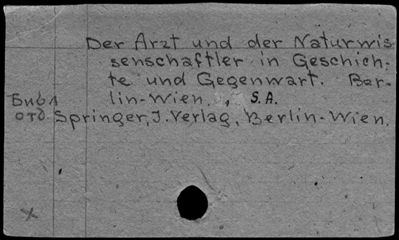 Der Arzt und der Naturwis
senschaftler in Geschich-
te und Gegenwart. Ber-
Библ lin-Wien, , S.A.
отд Springer, J. Verlag, Berlin-Wien.
x